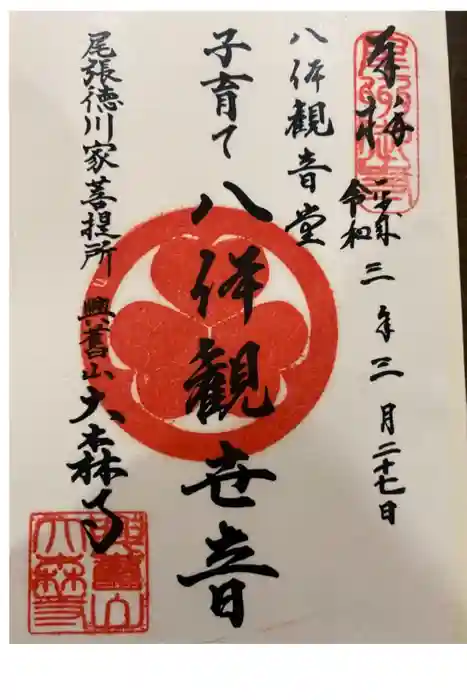 奉拝
令和三年三月二十七日
八体観音堂
子育て
八体観世音
尾張徳川家菩提所
興旧山大森寺